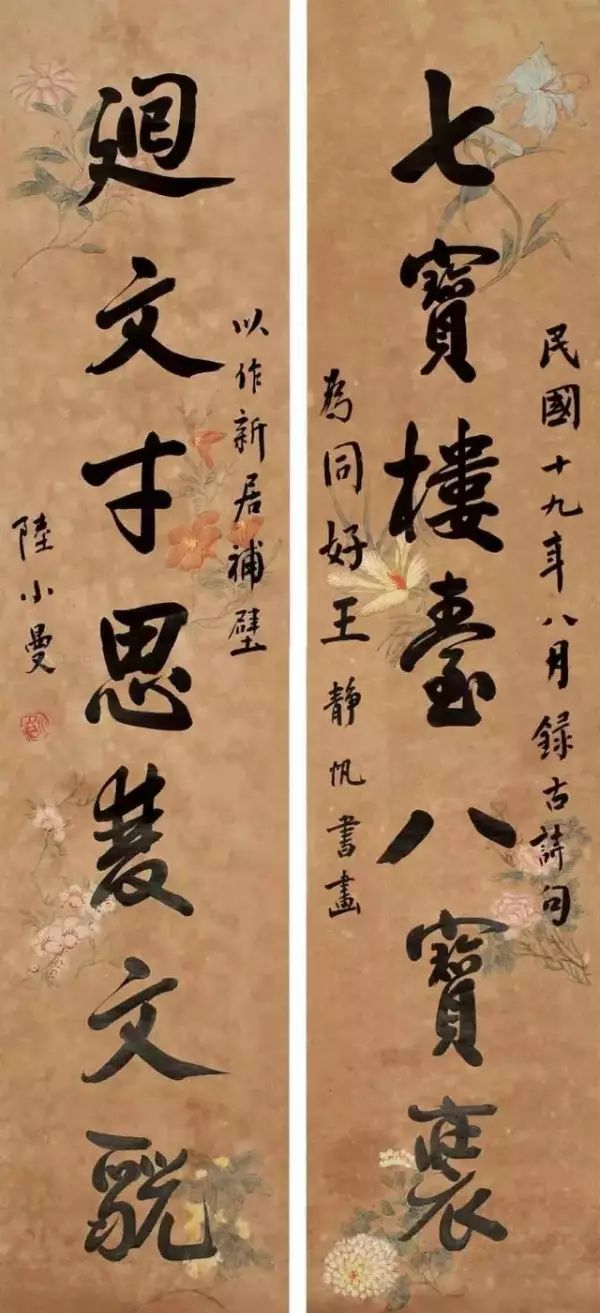 民國十九年八月録古詩句
七寶樓臺八寶
為同好王靜帆書畫
以作新居補壁
廻文才思文
陸小曼